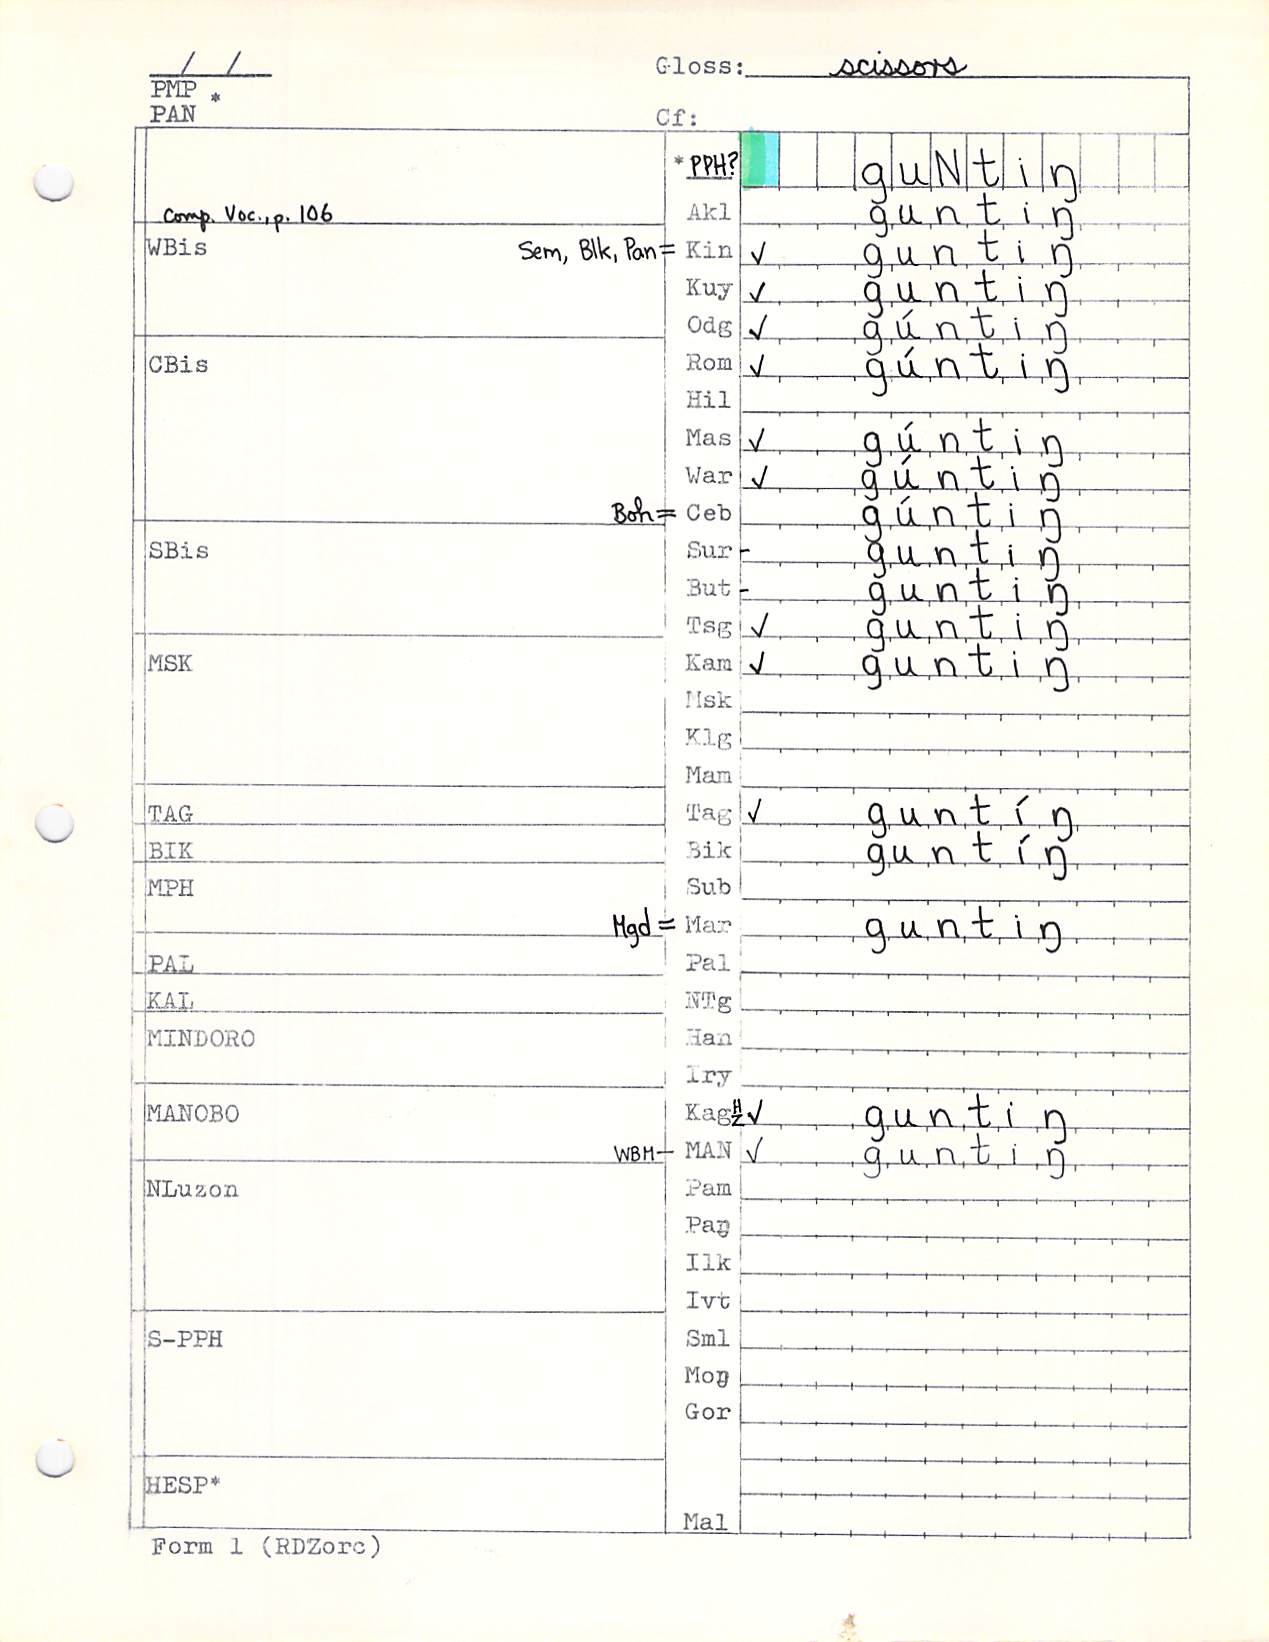 / /
Gloss: scissors
PMP
PAN *
Cf:
*PPH? guNtiŋ
Comp. Voc., p. 106
Akl guntiŋ
WBis Sem, Blk, Pan = Kin ✓ guntiŋ
Kuy ✓ guntiŋ
Odg ✓ gúntiŋ
CBis Rom ✓ gúntiŋ
Hil
Mas ✓ gúntiŋ
War ✓ gúntiŋ
Boh = Ceb gúntiŋ
SBis Sur - guntiŋ
But - guntiŋ
Tsg ✓ guntiŋ
MSK Kam ✓ guntiŋ
Msk
Klg
Mam
TAG Tag ✓ guntíŋ
BIK Bik guntíŋ
MPH Sub
Mgd = Mar guntiŋ
PAL Pal
KAL NTg
MINDORO Han
Iry
MANOBO Kag H/Z ✓ guntiŋ
WBM — MAN ✓ guntiŋ
NLuzon Pam
Paŋ
Ilk
Ivt
S-PPH Sml
Moŋ
Gor
HESP*
Mal
Form 1 (RDZorc)